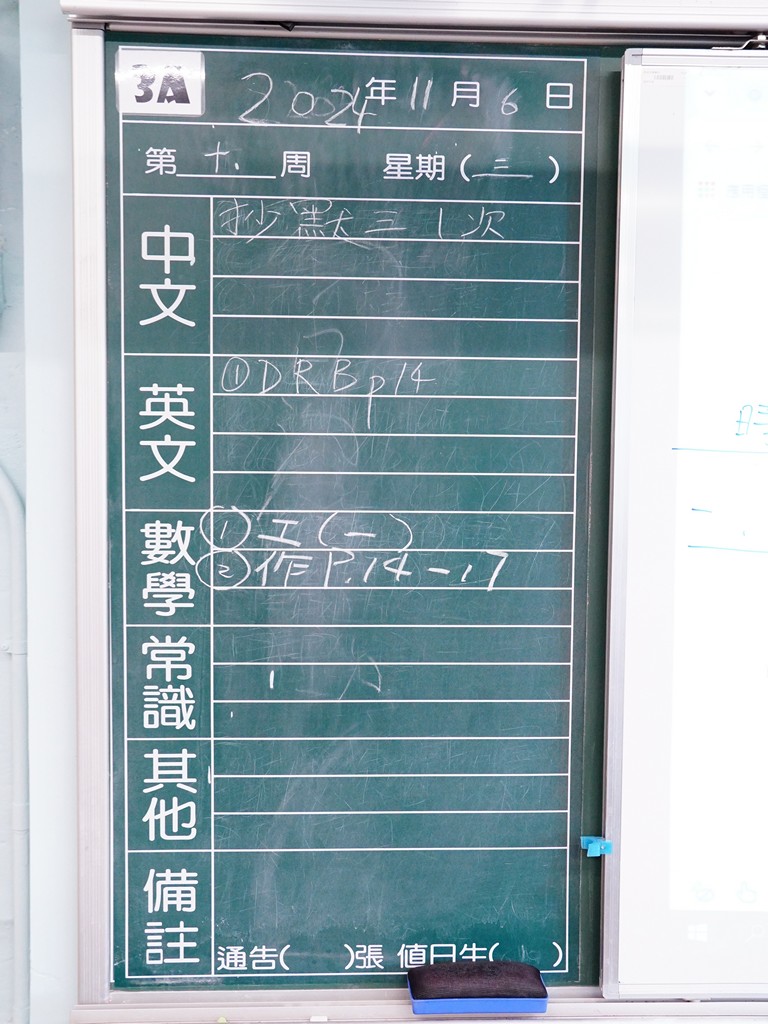 3A
2024年11月6日
第十周 星期(三)
中文
抄默三 1次
英文
①DRBp14
數學
①工(一)
②作P.14-17
常識
其他
備註
通告( )張 值日生( )